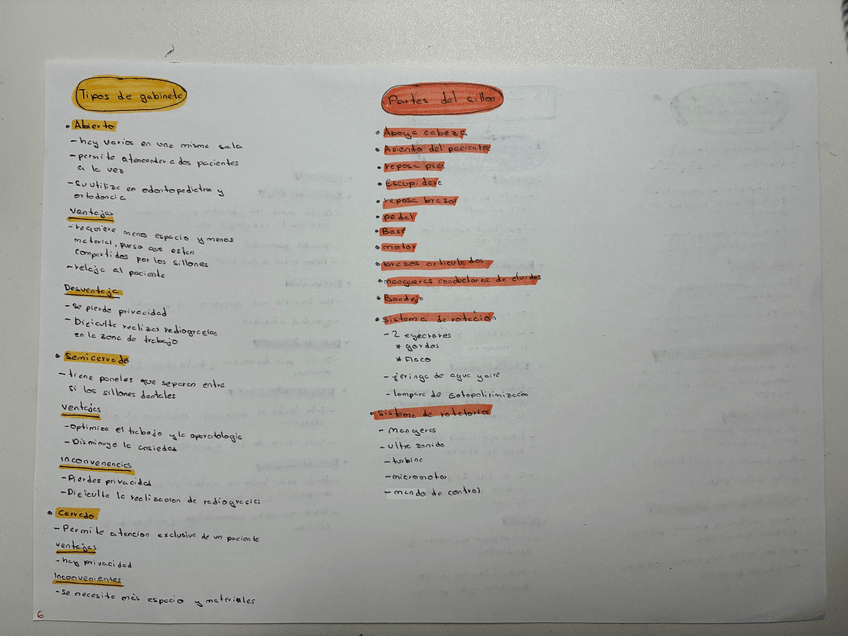 Tipos de gabinete
• Abierto
- hay varios en una misma sala
- permite atenender a dos pacientes
a la vez
- Su utiliza en odontopediatria y
ortodoncia
Ventajas
- requiere menos espacio y menos
material, pueso que estan
compartidos por los sillones
- relaja al paciente
Desventaja
- Se pierde privacidad
- Dificulta realizar radiografias
en la zona de trabajo
• Semicerrado
- tiene paneles que separan entre
si los sillones dentales
Ventajas
- optimiza el trabajo y la aparatologia
- Disminuye la ansiedad
Inconvenencias
- Pierdes privacidad
- Dificulta la realizacion de radiografias
• Cerrado
- Permite atencion exclusiva de un paciente
ventajas
- hay privacidad
Inconvenientes
- Se necesita más espacio y materiales
6
Partes del sillon
• Apoya cabeza
• Asiento del paciente
• reposa pies
• Escupidera
• reposa brazos
• pedal
• Base
• motor
• brazos articulados
• mangueras conductoras de fluidos
• Bandeja
• Sistema de rotación
- 2 eyectores
* gordos
* Flaco
- jeringa de agua y aire
- lampara de fotopolimerización
• Sistema de rotatorio
- mangeras
- ultra sonido
- turbina
- micromotor
- mando de control